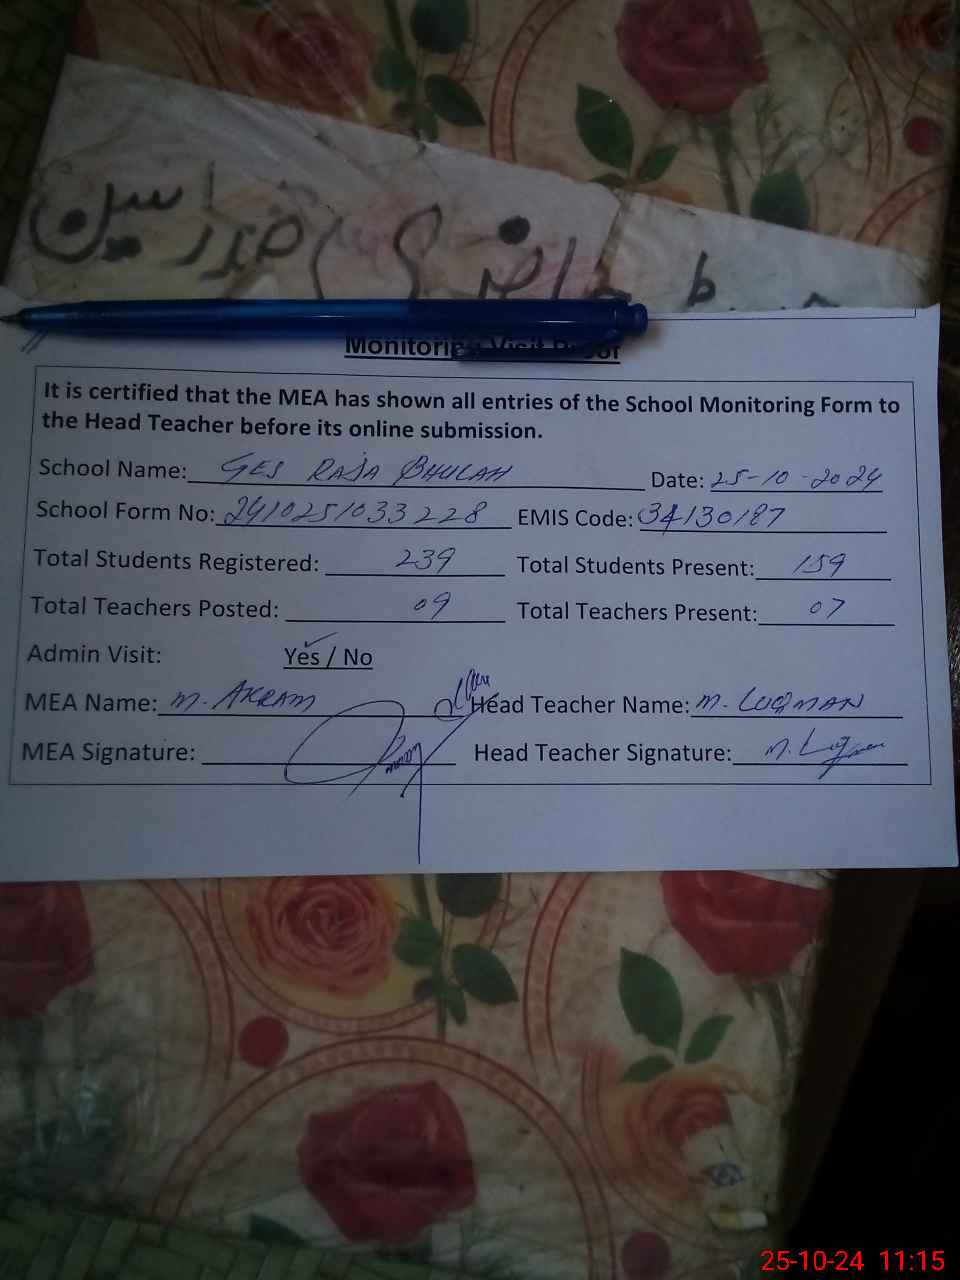 حاضری مدراسین
Monitoring Visit Proof
It is certified that the MEA has shown all entries of the School Monitoring Form to
the Head Teacher before its online submission.
School Name: GES RAJA BHULAH Date: 25-10-2024
School Form No: 2410251033228 EMIS Code: 34130187
Total Students Registered: 239 Total Students Present: 159
Total Teachers Posted: 09 Total Teachers Present: 07
Admin Visit: Yes / No
MEA Name: M. AKRAM Head Teacher Name: M. LUQMAN
MEA Signature: Head Teacher Signature: M. Luqman
25-10-24 11:15